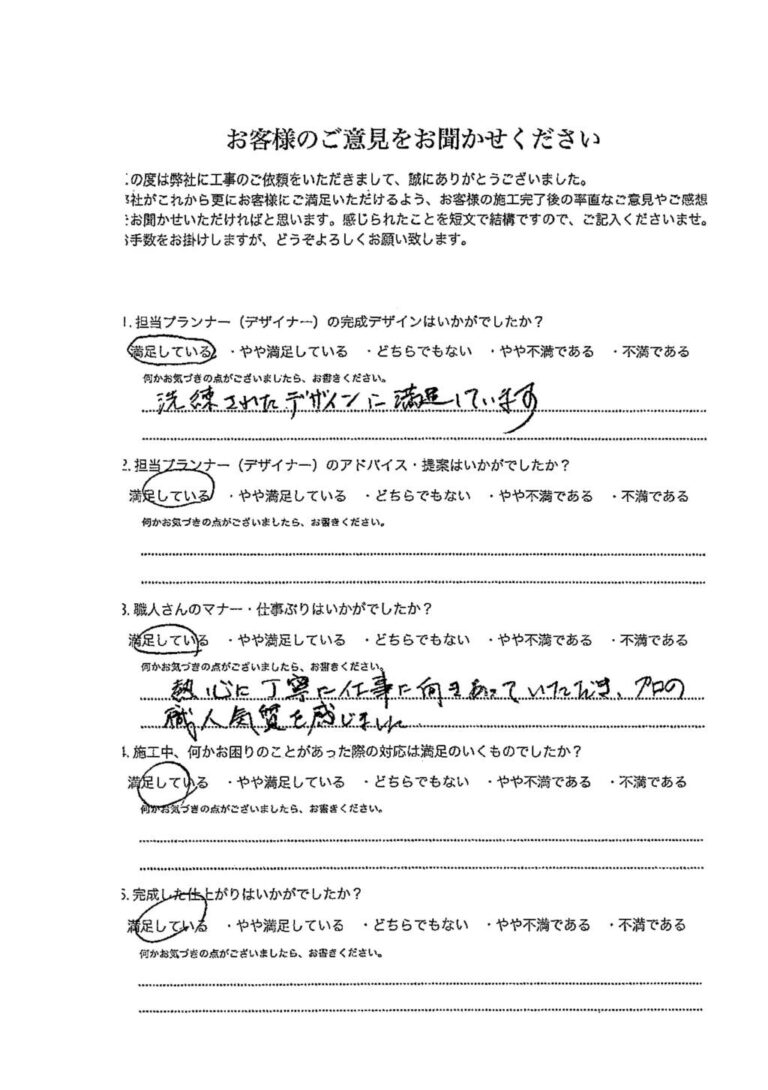 お客様のご意見をお聞かせください
の度は弊社に工事のご依頼をいただきまして、誠にありがとうございました。
社がこれから更にお客様にご満足いただけるよう、お客様の施工完了後の率直なご意見やご感想
お聞かせいただければと思います。感じられたことを短文で結構ですので、ご記入くださいませ。
手数をお掛けしますが、どうぞよろしくお願い致します。
1. 担当プランナー（デザイナー）の完成デザインはいかがでしたか？
満足している ・やや満足している ・どちらでもない ・やや不満である ・不満である
何かお気づきの点がございましたら、お書きください。
洗練されたデザインに満足しています
2. 担当プランナー（デザイナー）のアドバイス・提案はいかがでしたか？
満足している ・やや満足している ・どちらでもない ・やや不満である ・不満である
何かお気づきの点がございましたら、お書きください。
3. 職人さんのマナー・仕事ぶりはいかがでしたか？
満足している ・やや満足している ・どちらでもない ・やや不満である ・不満である
何かお気づきの点がございましたら、お書きください。
熱心に丁寧に仕事に向きあっていただき、プロの
職人気質を感じました
4. 施工中、何かお困りのことがあった際の対応は満足のいくものでしたか？
満足している ・やや満足している ・どちらでもない ・やや不満である ・不満である
何かお気づきの点がございましたら、お書きください。
5. 完成した仕上がりはいかがでしたか？
満足している ・やや満足している ・どちらでもない ・やや不満である ・不満である
何かお気づきの点がございましたら、お書きください。